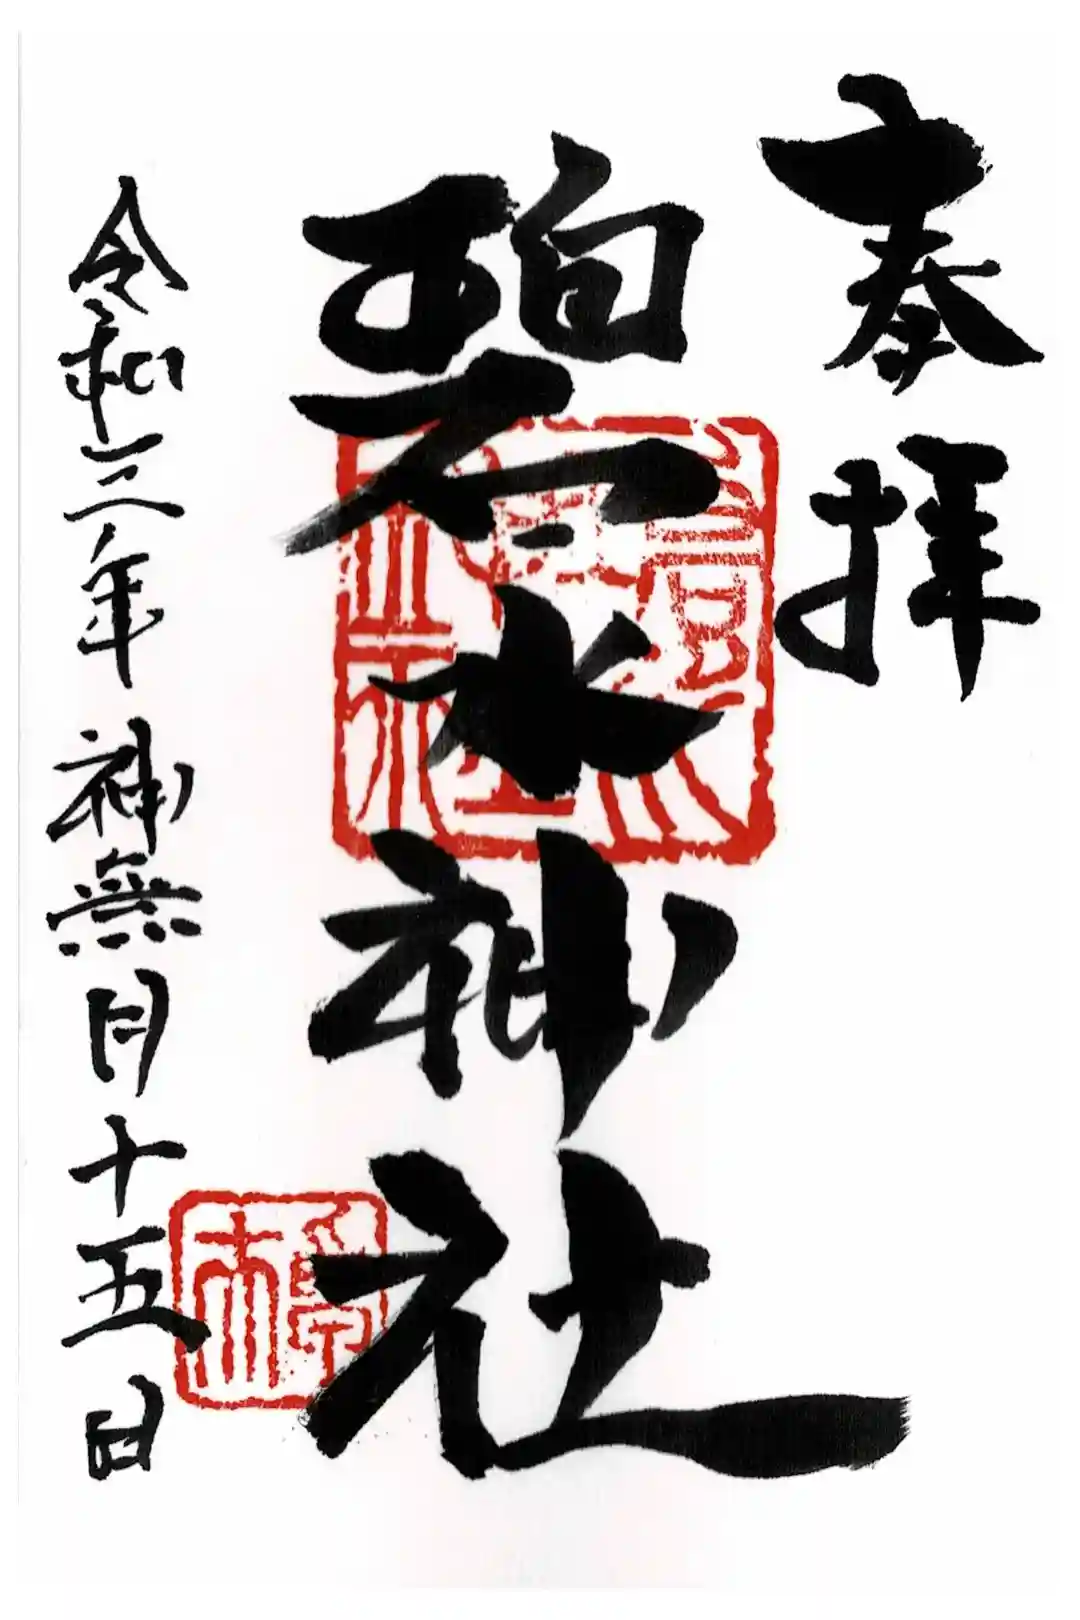 奉拝
碧水神社
令和三年神無月十五日